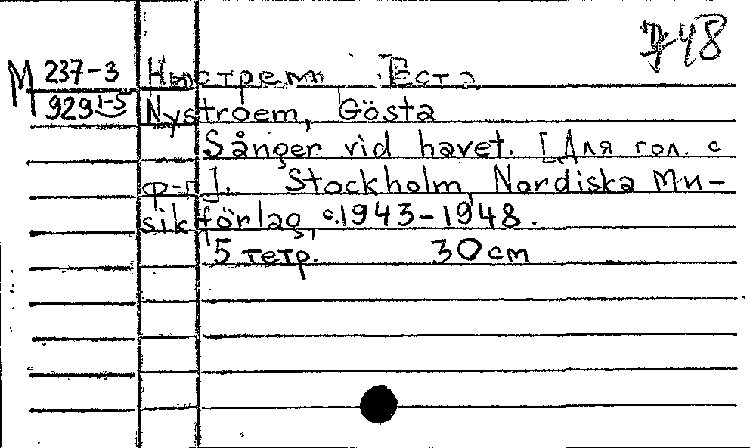 748
М 237-3 Нюстрем Ёста
929 1-5 Nystroem, Gösta
Sånger vid havet. [Для гол. с
ф-п]. Stockholm, Nordiska Mu-
sikförlag, c.1943-1948.
5 тетр. 30 cm